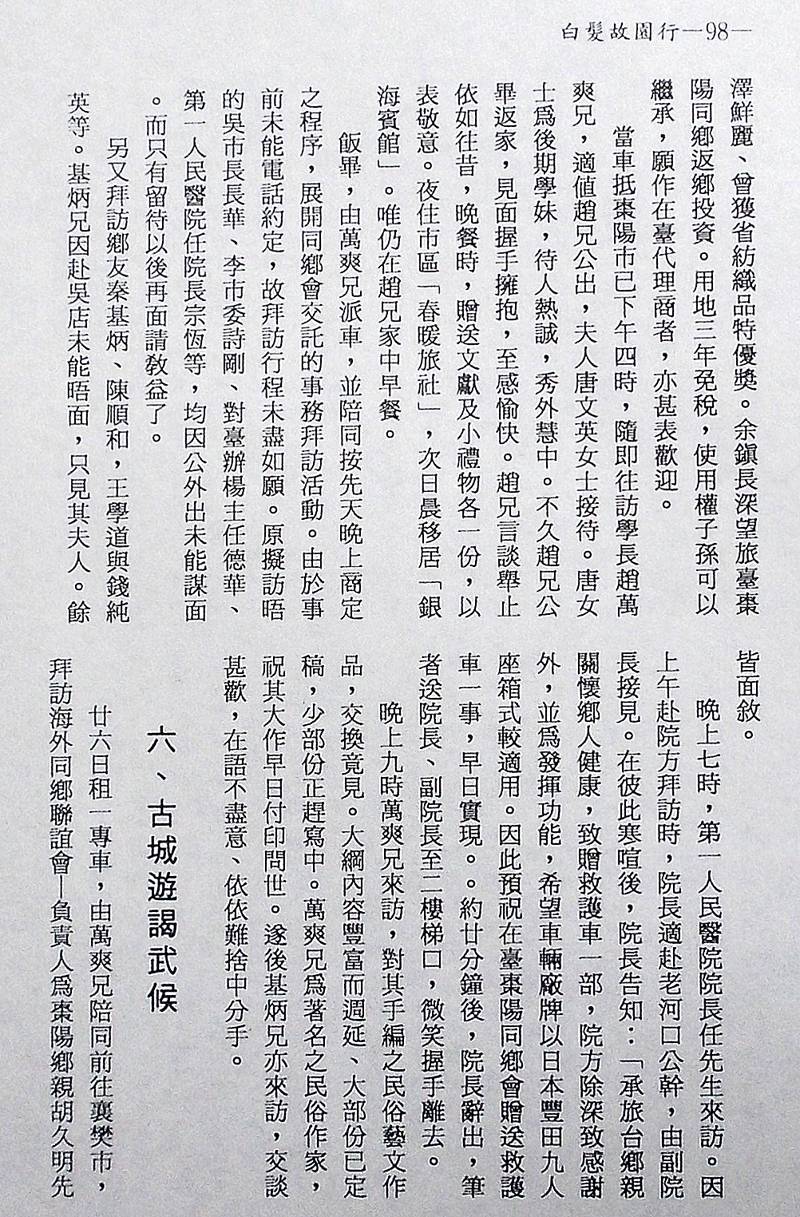 白髮故園行—98—
澤鮮麗、曾獲省紡織品特優獎。余鎮長深望旅臺棗
陽同鄉返鄉投資。用地三年免稅，使用權子孫可以
繼承，願作在臺代理商者，亦甚表歡迎。
當車抵棗陽市已下午四時，隨即往訪學長趙萬
爽兄，適值趙兄公出，夫人唐文英女士接待。唐女
士爲後期學妹，待人熱誠，秀外慧中。不久趙兄公
畢返家，見面握手擁抱，至感愉快。趙兄言談舉止
依如往昔，晚餐時，贈送文獻及小禮物各一份，以
表敬意。夜住市區「春暖旅社」，次日晨移居「銀
海賓館」。唯仍在趙兄家中早餐。
飯畢，由萬爽兄派車，並陪同按先天晚上商定
之程序，展開同鄉會交託的事務拜訪活動。由於事
前未能電話約定，故拜訪行程未盡如願。原擬訪晤
的吳市長長華、李市委詩剛、對臺辦楊主任德華、
第一人民醫院任院長宗恆等，均因公外出未能謀面
。而只有留待以後再面請敎益了。
另又拜訪鄉友秦基炳、陳順和，王學道與錢純
英等。基炳兄因赴吳店未能晤面，只見其夫人。餘
皆面敘。
晚上七時，第一人民醫院院長任先生來訪。因
上午赴院方拜訪時，院長適赴老河口公幹，由副院
長接見。在彼此寒暄後，院長告知：「承旅台鄉親
關懷鄉人健康，致贈救護車一部，院方除深致感謝
外，並爲發揮功能，希望車輛廠牌以日本豐田九人
座箱式較適用。因此預祝在臺棗陽同鄉會贈送救護
車一事，早日實現。。約廿分鐘後，院長辭出，筆
者送院長、副院長至二樓梯口，微笑握手離去。
晚上九時萬爽兄來訪，對其手編之民俗藝文作
品，交換竟見。大綱內容豐富而週延、大部份已定
稿，少部份正趕寫中。萬爽兄爲著名之民俗作家，
祝其大作早日付印問世。遂後基炳兄亦來訪，交談
甚歡，在語不盡意、依依難捨中分手。
六、古城遊謁武候
廿六日租一專車，由萬爽兄陪同前往襄樊市，
拜訪海外同鄉聯誼會—負責人爲棗陽鄉親胡久明先